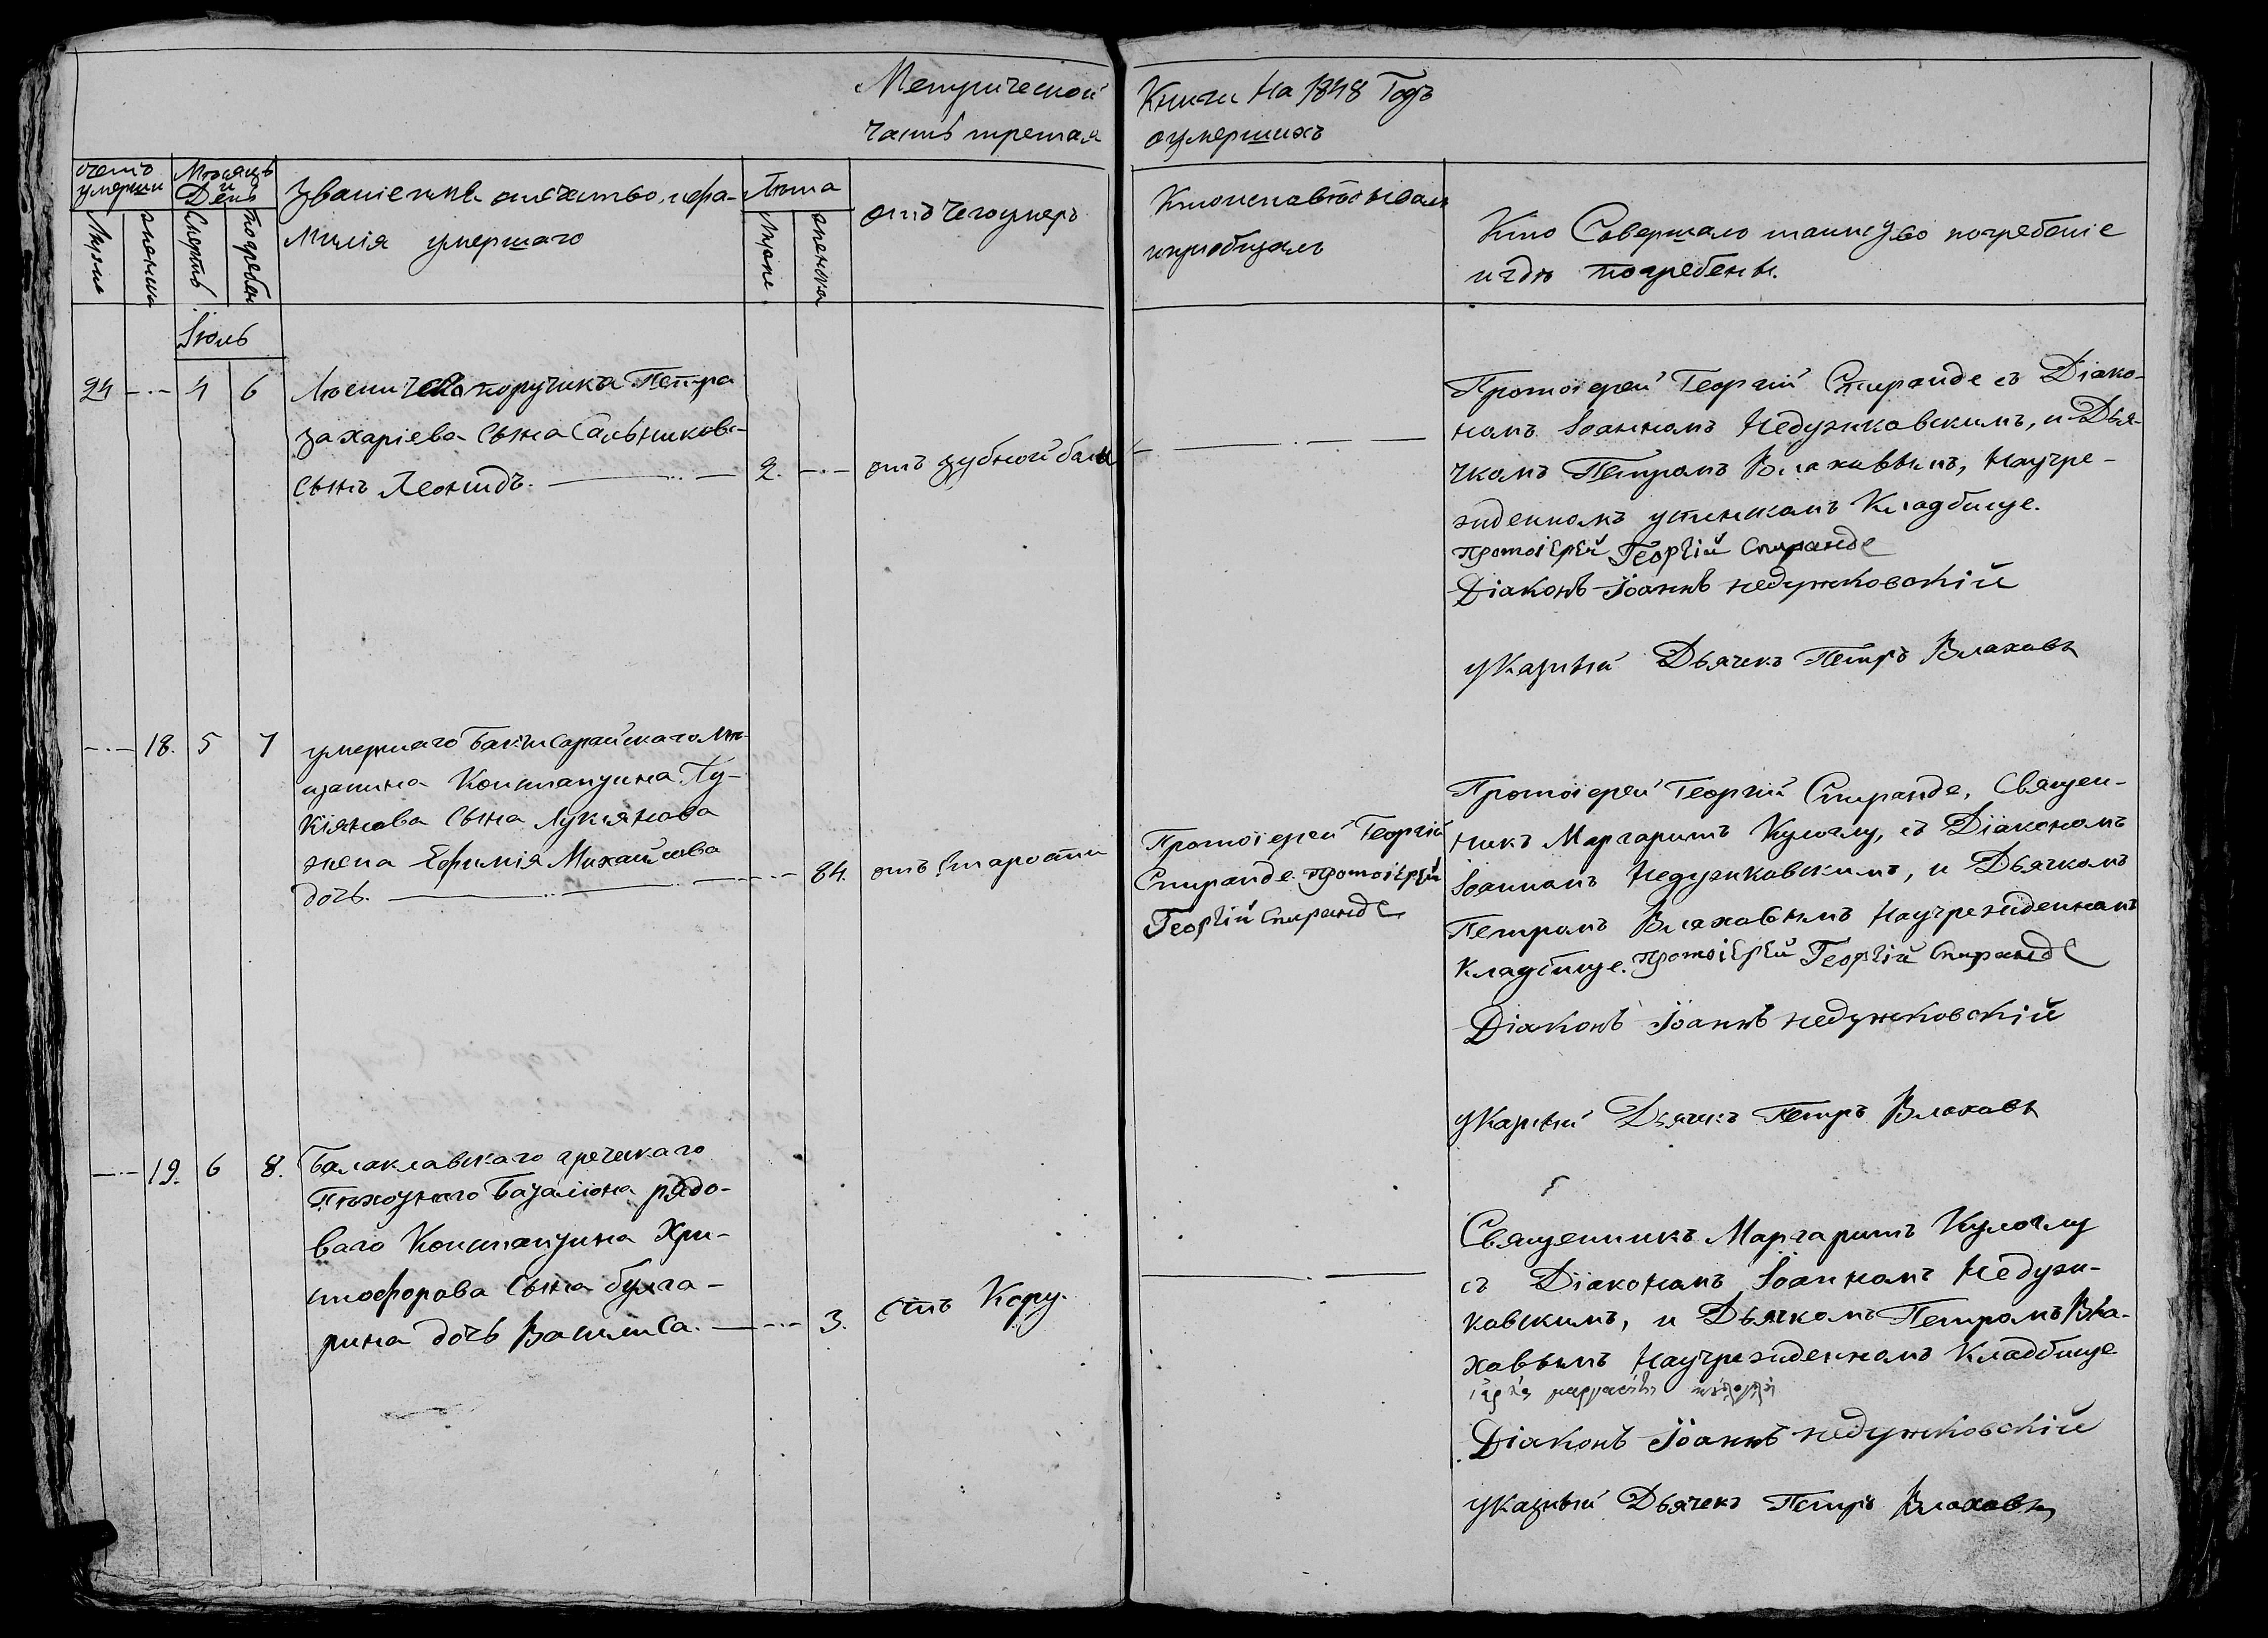 Метрической Книги на 1848 Годъ
часть третая оумершихъ
счетъ умерши
Мѣсяцъ и День
Званіе имя отечество, ифа-
милія умершаго
Лѣта
отъ чего умеръ
Кто исповѣдывалъ
и приобщалъ
Кто Совершалъ таинство погребеніе
и гдѣ погребены.
мужс
женска
Смерть
погребен
мужс.
женска
Іюль
24 4 6
поручика Петра
Захаріева Сына Сальникова
Сынъ Леонидъ. 2. отъ зубной боли
Протоіерей Георгій Спиранде съ Діако-
номъ Іоанномъ Недужковскимъ, и Дья-
чкомъ Петромъ Влаховымъ, На учре-
жденномъ Кладбище.
Протоіерей Георгій Спиранде
Діаконъ Іоаннъ недужковскій
указный Дьячекъ Петръ Влаховъ
18. 5 7 умершаго Бакчисарайскаго мѣ-
щанина Константина Лу-
кіянова Сына Лукіянова
жена Ефимія Михайлова
дочь. 84. отъ Старости
Протоіерей Георгій
Спиранде. Протоіерей
Георгій Спиранде
Протоіерей Георгій Спиранде, Священ-
никъ Маргаритъ Кулоглу, съ Діакономъ
Іоанномъ Недужковскимъ, и Дьячкомъ
Петромъ Влаховымъ На учрежденномъ
Кладбище. Протоіерей Георгій Спиранде
Діаконъ Іоаннъ недужковскій
указный Дьячекъ Петръ Влаховъ
19. 6 8. Балаклавскаго греческаго
Пѣхотнаго Баталіона рядо-
ваго Константина Хри-
стофорова Сына булга-
рина дочь Василиса. 3. отъ Кору.
Священникъ Маргаритъ Кулоглу
съ Діакономъ Іоанномъ Недуж-
ковскимъ, и Дьячкомъ Петромъ Вла-
ховымъ На учрежденномъ Кладбище
Діаконъ Іоаннъ недужковскій
указный Дьячекъ Петръ Влаховъ